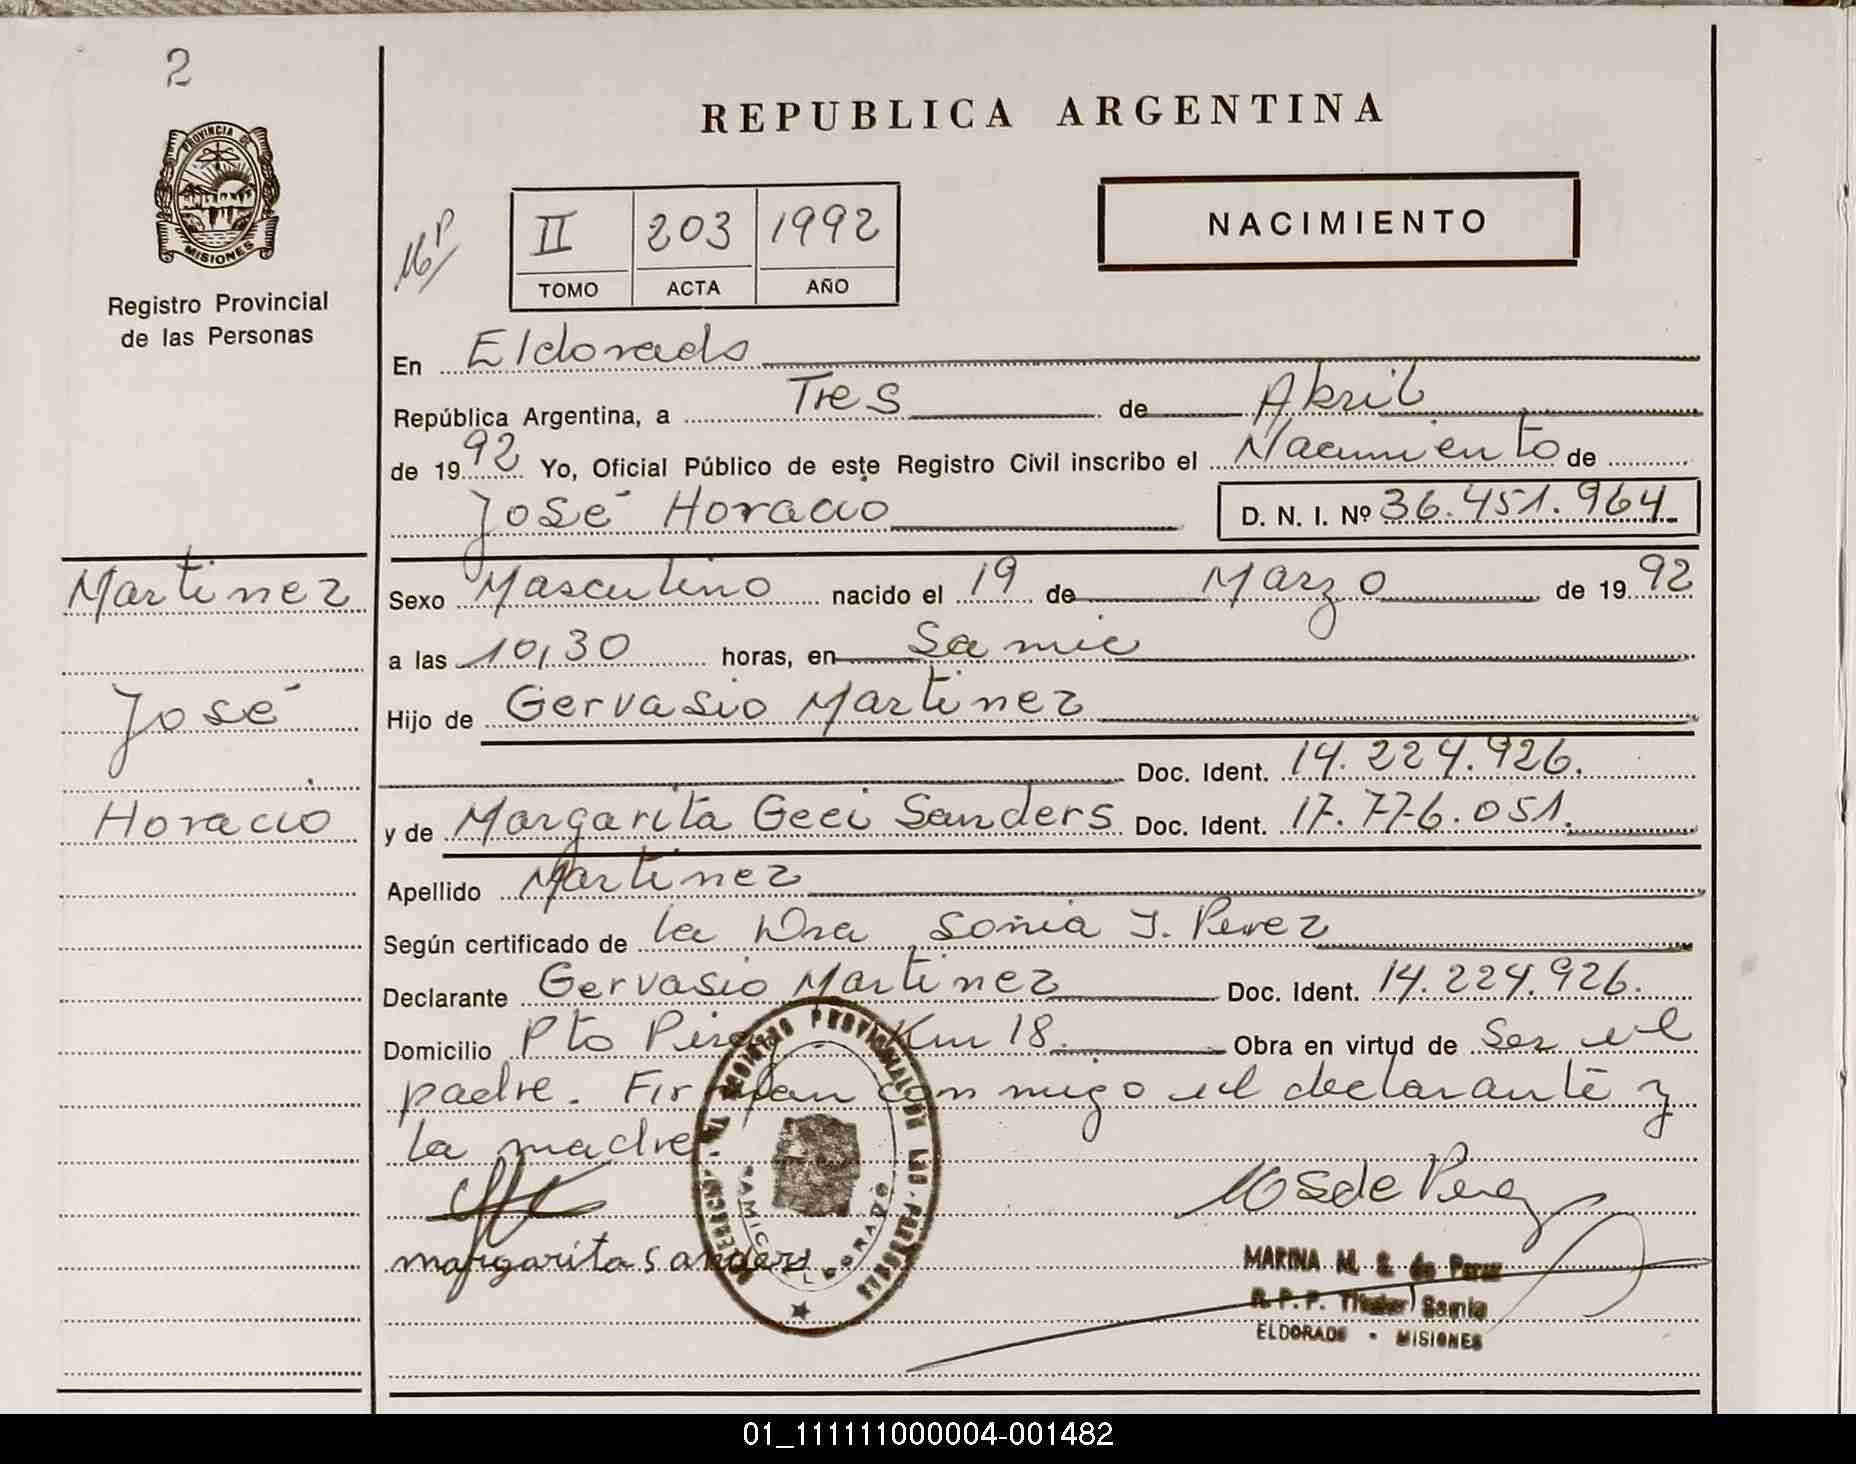 2
PROVINCIA DE
MISIONES
Registro Provincial
de las Personas
Martinez
José
Horacio
REPUBLICA ARGENTINA
NACIMIENTO
II 203 1992
TOMO ACTA AÑO
En Eldorado
República Argentina, a Tres de Abril
de 1992 Yo, Oficial Público de este Registro Civil inscribo el Nacimiento de
José Horacio D. N. I. Nº 36.451.964
Sexo Masculino nacido el 19 de Marzo de 1992
a las 10,30 horas, en Samic
Hijo de Gervasio Martinez
Doc. Ident. 14.224.926.
y de Margarita Geci Sanders Doc. Ident. 17.776.051.
Apellido Martinez
Según certificado de la Dra Sonia J. Perez
Declarante Gervasio Martinez Doc. Ident. 14.224.926.
Domicilio Pto Km 18. Obra en virtud de Ser el
padre. Firman conmigo el declarante y
la madre.
MSde Perez
margarita Sanders
MARINA M. S. de Perez
R. P. P. Titular Samic
ELDORADO - MISIONES
01_111111000004-001482